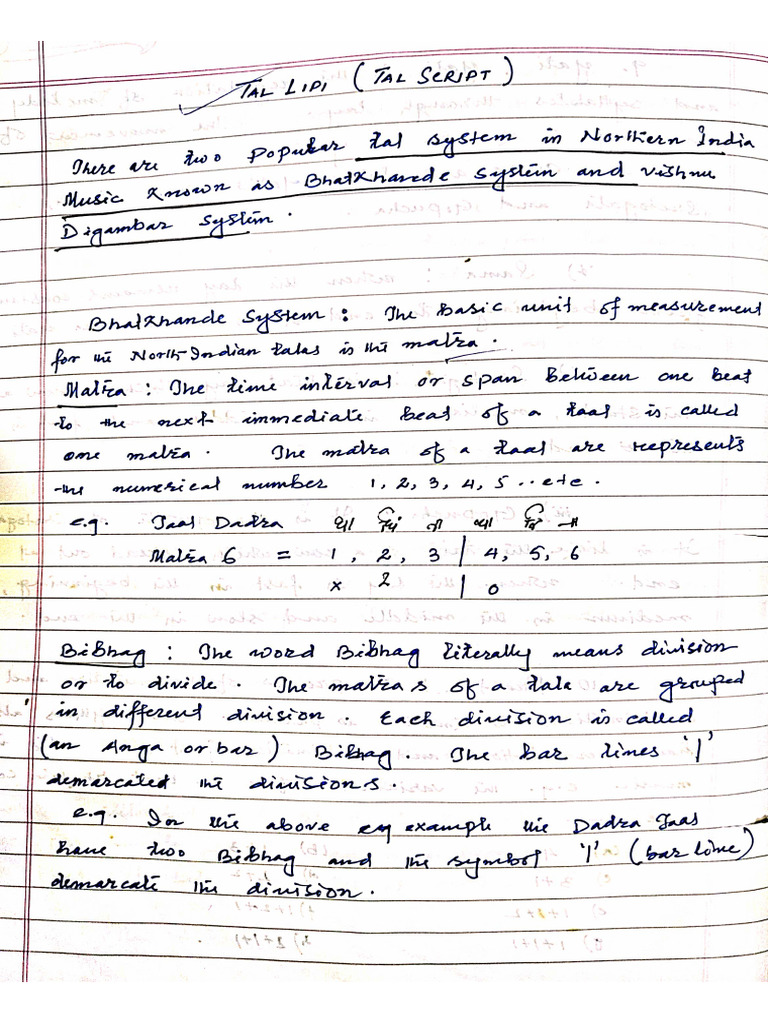 TAL LIPI (TAL SCRIPT)
There are two popular tal system in Northern India
Music known as Bhatkhande system and Vishnu
Digambar system.
Bhatkhande System : The basic unit of measurement
for the North Indian talas is the matra.
Matra : The time interval or span between one beat
to the next immediate beat of a taal is called
one matra. The matra of a taal are represents
the numerical number 1, 2, 3, 4, 5 ..etc.
e.g. Taal Dadra धा धिं ना
Matra 6 = 1, 2, 3 | 4, 5, 6
x 2 | 0
Bibhag : The word Bibhag literally means division
or to divide. The matras of a tala are grouped
in different division. Each division is called
(an Anga or bar) Bibhag. The bar lines '|'
demarcated the divisions.
e.g. In the above example the Dadra Taal
have two Bibhag and the symbol '|' (bar line)
demarcate the division.